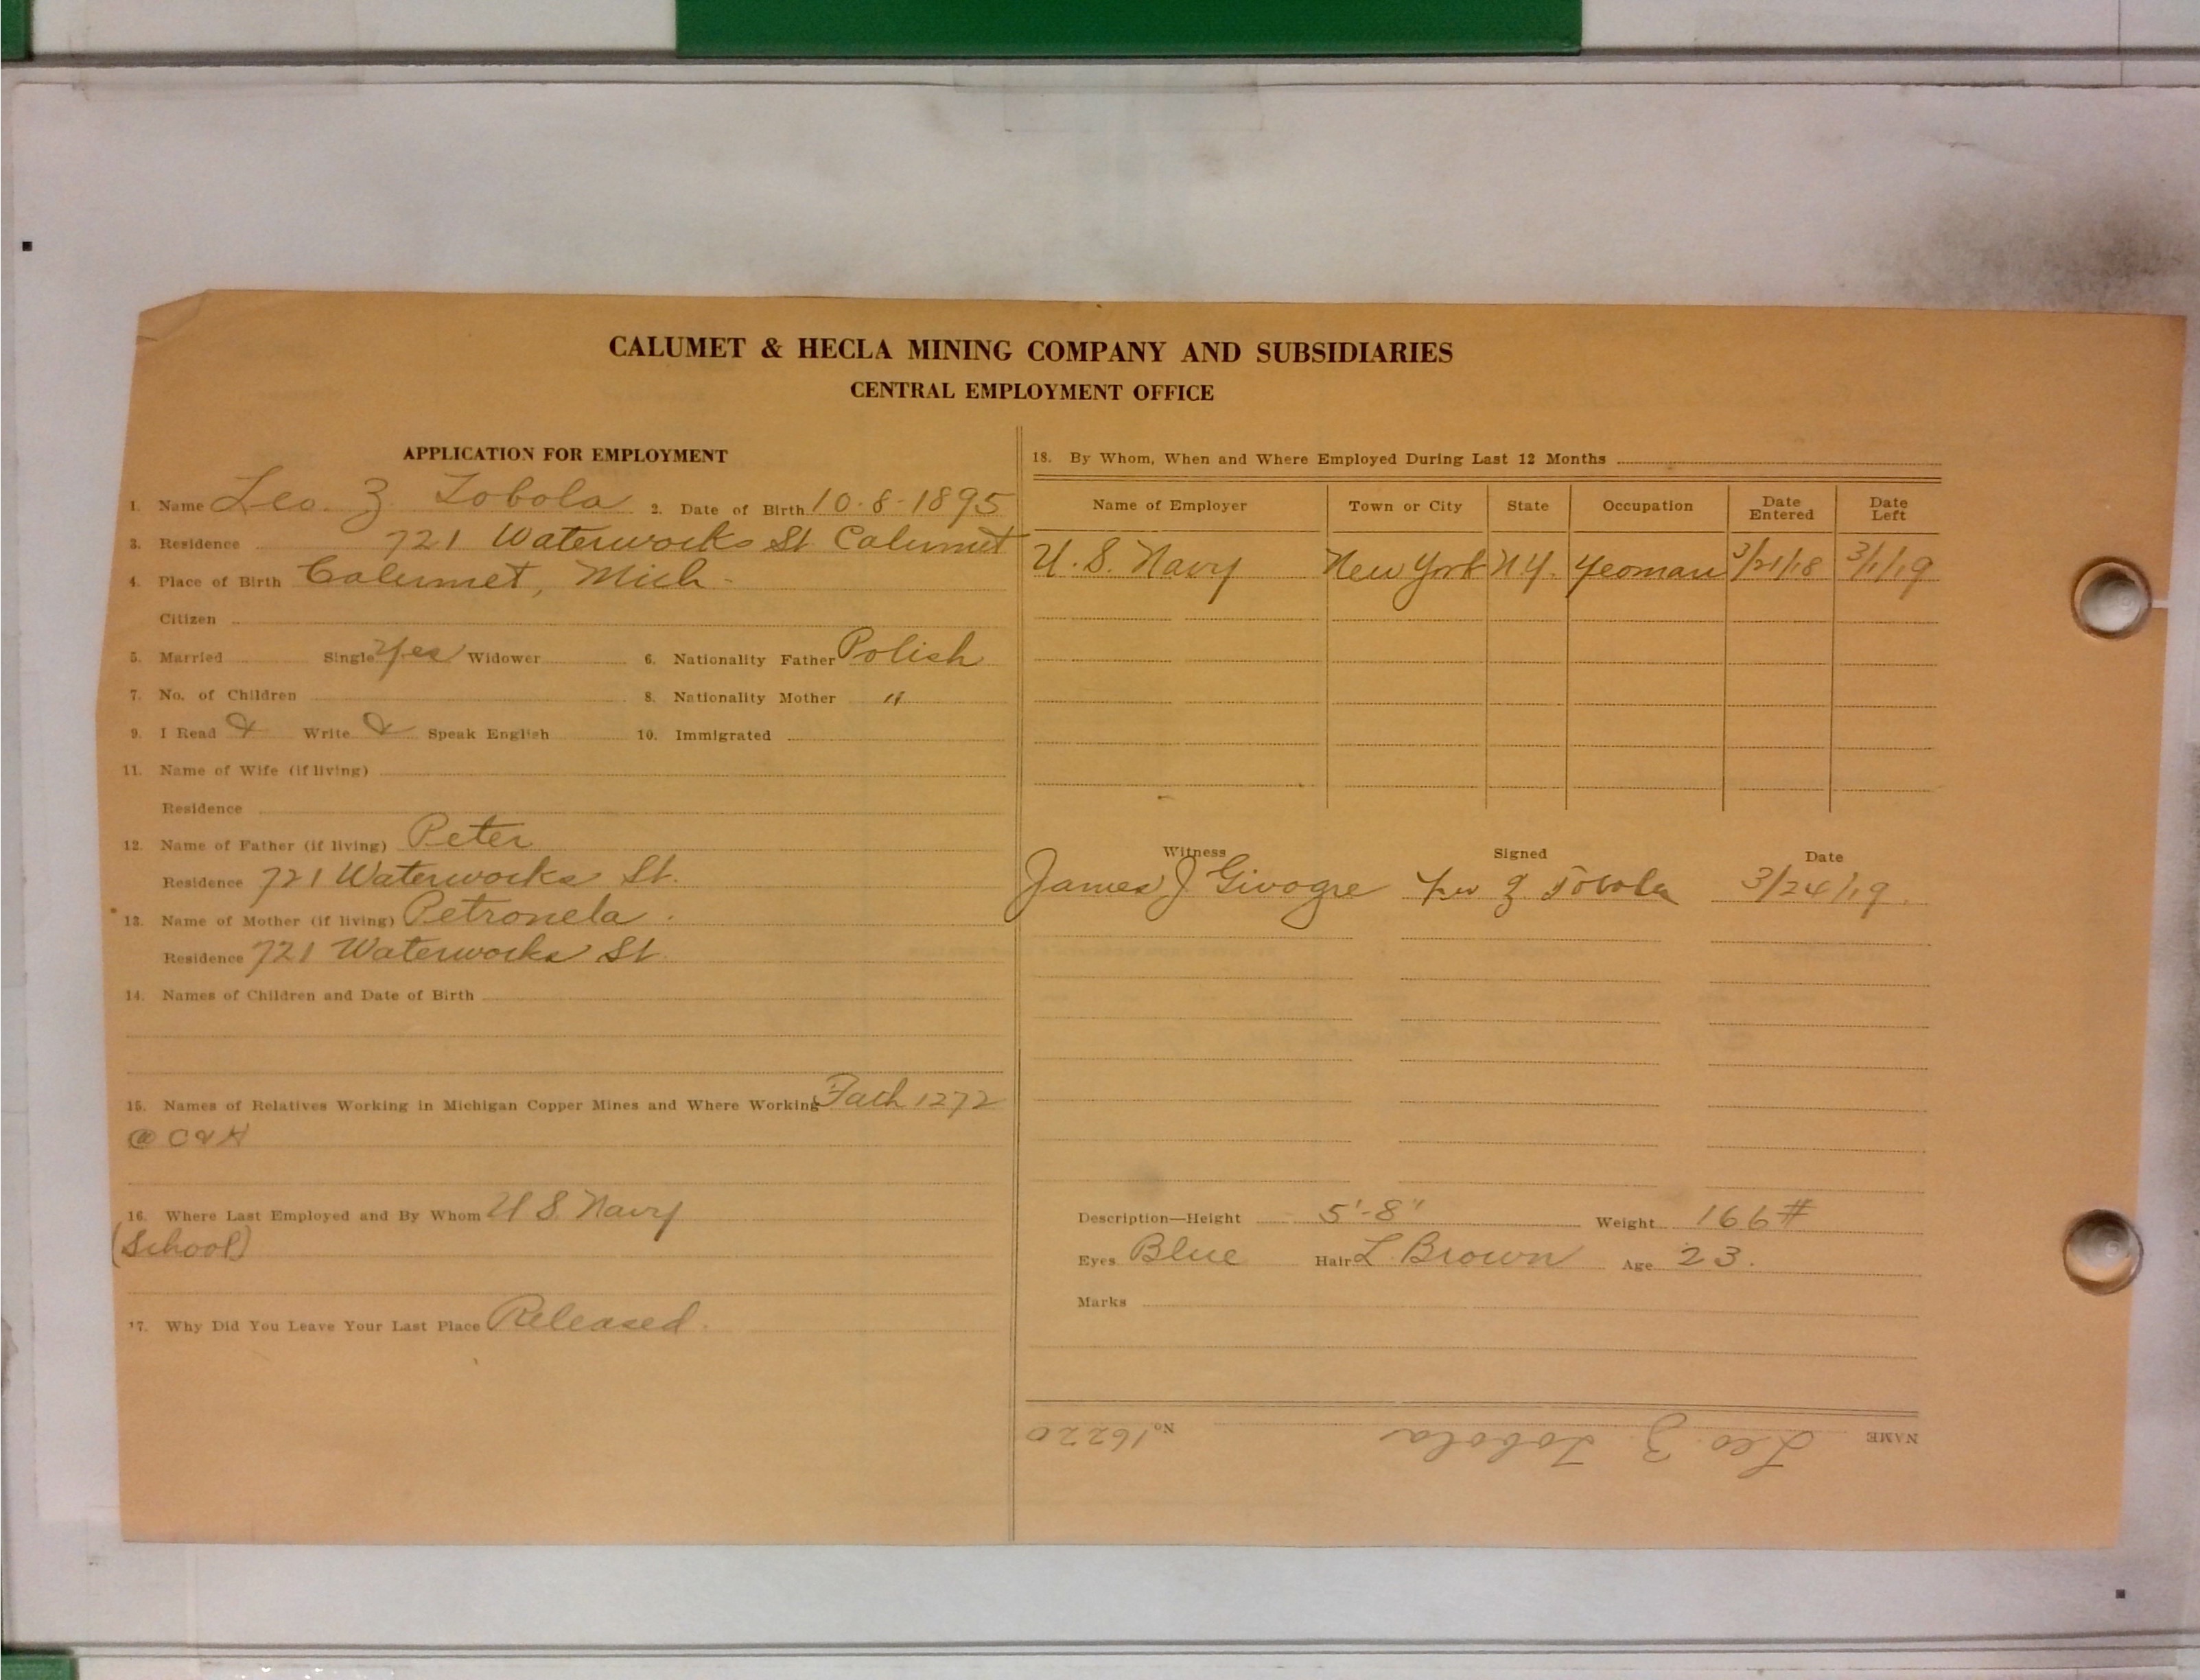 CALUMET & HECLA MINING COMPANY AND SUBSIDIARIES
CENTRAL EMPLOYMENT OFFICE
APPLICATION FOR EMPLOYMENT
1. Name Leo. Z. Tobola 2. Date of Birth 10-8-1895
3. Residence 721 Waterworks St Calumet
4. Place of Birth Calumet, Mich.
Citizen
5. Married Single Yes Widower 6. Nationality Father Polish
7. No. of Children 8. Nationality Mother "
9. I Read & Write & Speak English 10. Immigrated
11. Name of Wife (if living)
Residence
12. Name of Father (if living) Peter
Residence 721 Waterworks St.
13. Name of Mother (if living) Petronela
Residence 721 Waterworks St
14. Names of Children and Date of Birth
15. Names of Relatives Working in Michigan Copper Mines and Where Working Fath 1272
@ C & H
16. Where Last Employed and By Whom U S. Navy
(School)
17. Why Did You Leave Your Last Place Released.
18. By Whom, When and Where Employed During Last 12 Months
Name of Employer Town or City State Occupation Date Entered Date Left
U. S. Navy New York N.Y. Yeoman 3/21/18 3/1/19
Witness Signed Date
James J Givogre Leo Z Tobola 3/24/19.
Description—Height 5'-8" Weight 166#
Eyes Blue Hair L. Brown Age 23.
Marks
NAME Leo. Z. Tobola No. 16220